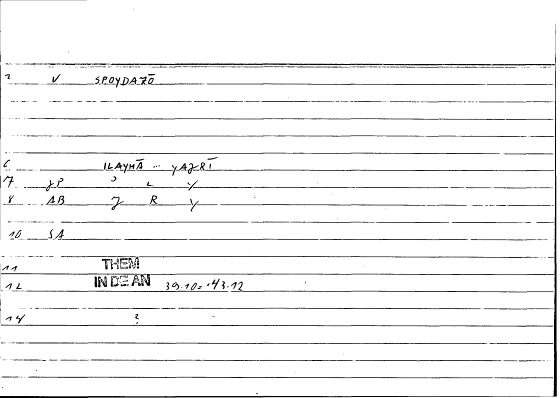 2 V SPOYDAZŌ
6 ILAYHĀ ... YAJRĪ
7 JP J L Y
8 AB J R Y
10 SA
11 THEM
12 IN DE AN 39.10= 43.12
14 ?